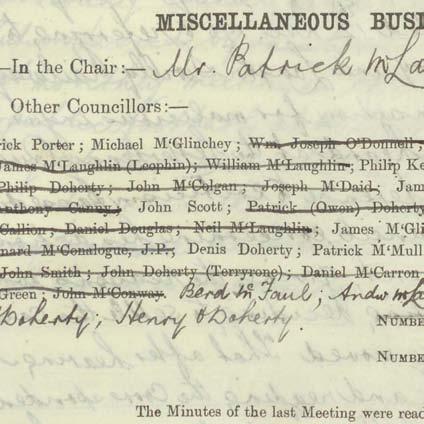 MISCELLANEOUS BUSI
—In the Chair:— Mr. Patrick McLa
Other Councillors:—
rick Porter; Michael M'Glinchey; Wm. Joseph O'Donnell;
James M'Laughlin (Loophin); William M'Laughlin; Philip Ke
Philip Doherty; John M'Colgan; Joseph M'Daid; Jam
nthony Canny; John Scott; Patrick (Owen) Doherty
Callion; Daniel Douglas; Neil M'Laughlin; James M'Gli
nard M'Conalogue, J.P.; Denis Doherty; Patrick M'Mull
John Smith; John Doherty (Terryrone); Daniel M'Carron
Green; John M'Conway. Bernd McFaul; Andw McL
Doherty; Henry O'Doherty.
NUMBE
NUMBE
The Minutes of the last Meeting were read